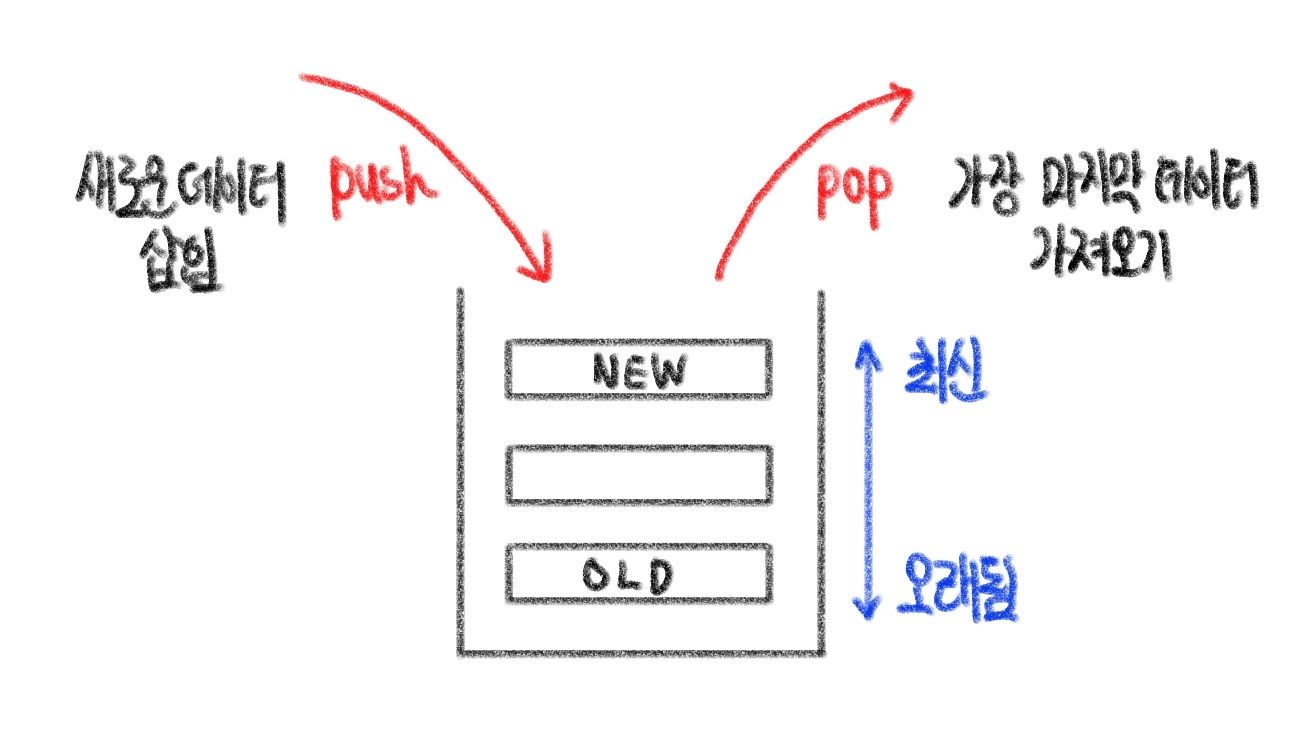 새로운 데이터
삽입
push
pop
가장 마지막 데이터
가져오기
NEW
최신
OLD
오래됨